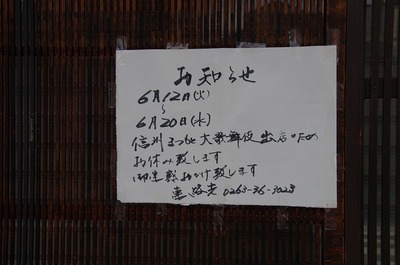 お知らせ
6月12日(火)
〜
6月20日(水)
信州まつもと大歌舞伎出店のため
お休み致します
御迷惑おかけ致します
連絡先 0263-36-3023